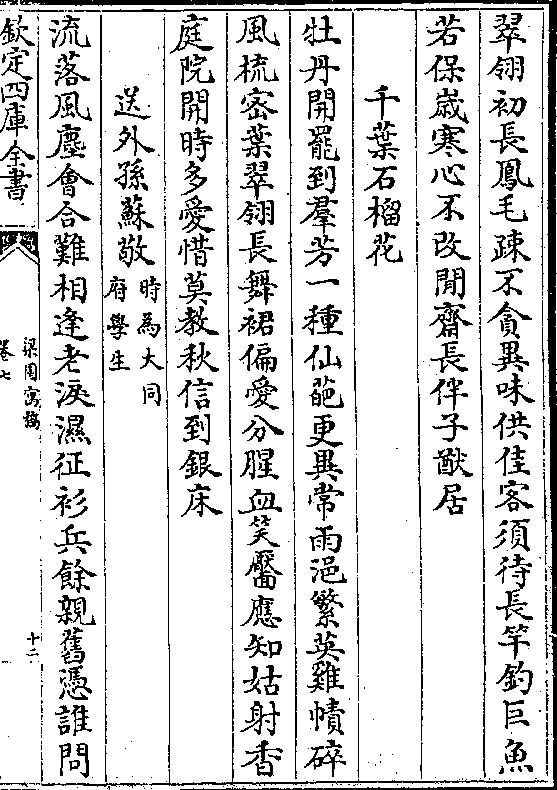 翠翎初長鳳毛疎不貪異味供佳客須待長竿釣巨魚
若保歲寒心不改閒齋長伴子猷居
千葉石榴花
牡丹開罷到羣芳一種仙葩更異常雨浥繁英雞幘碎
風梳宻葉翠翎長舞裙偏愛分腥血笑靨應知姑射香
庭院開時多愛惜莫教秋信到銀床
送外孫蘇敬時為大同府學生
流落風塵會合難相逢老淚濕征衫兵餘親舊憑誰問
欽定四庫全書
梁園寓稿
卷七
十二